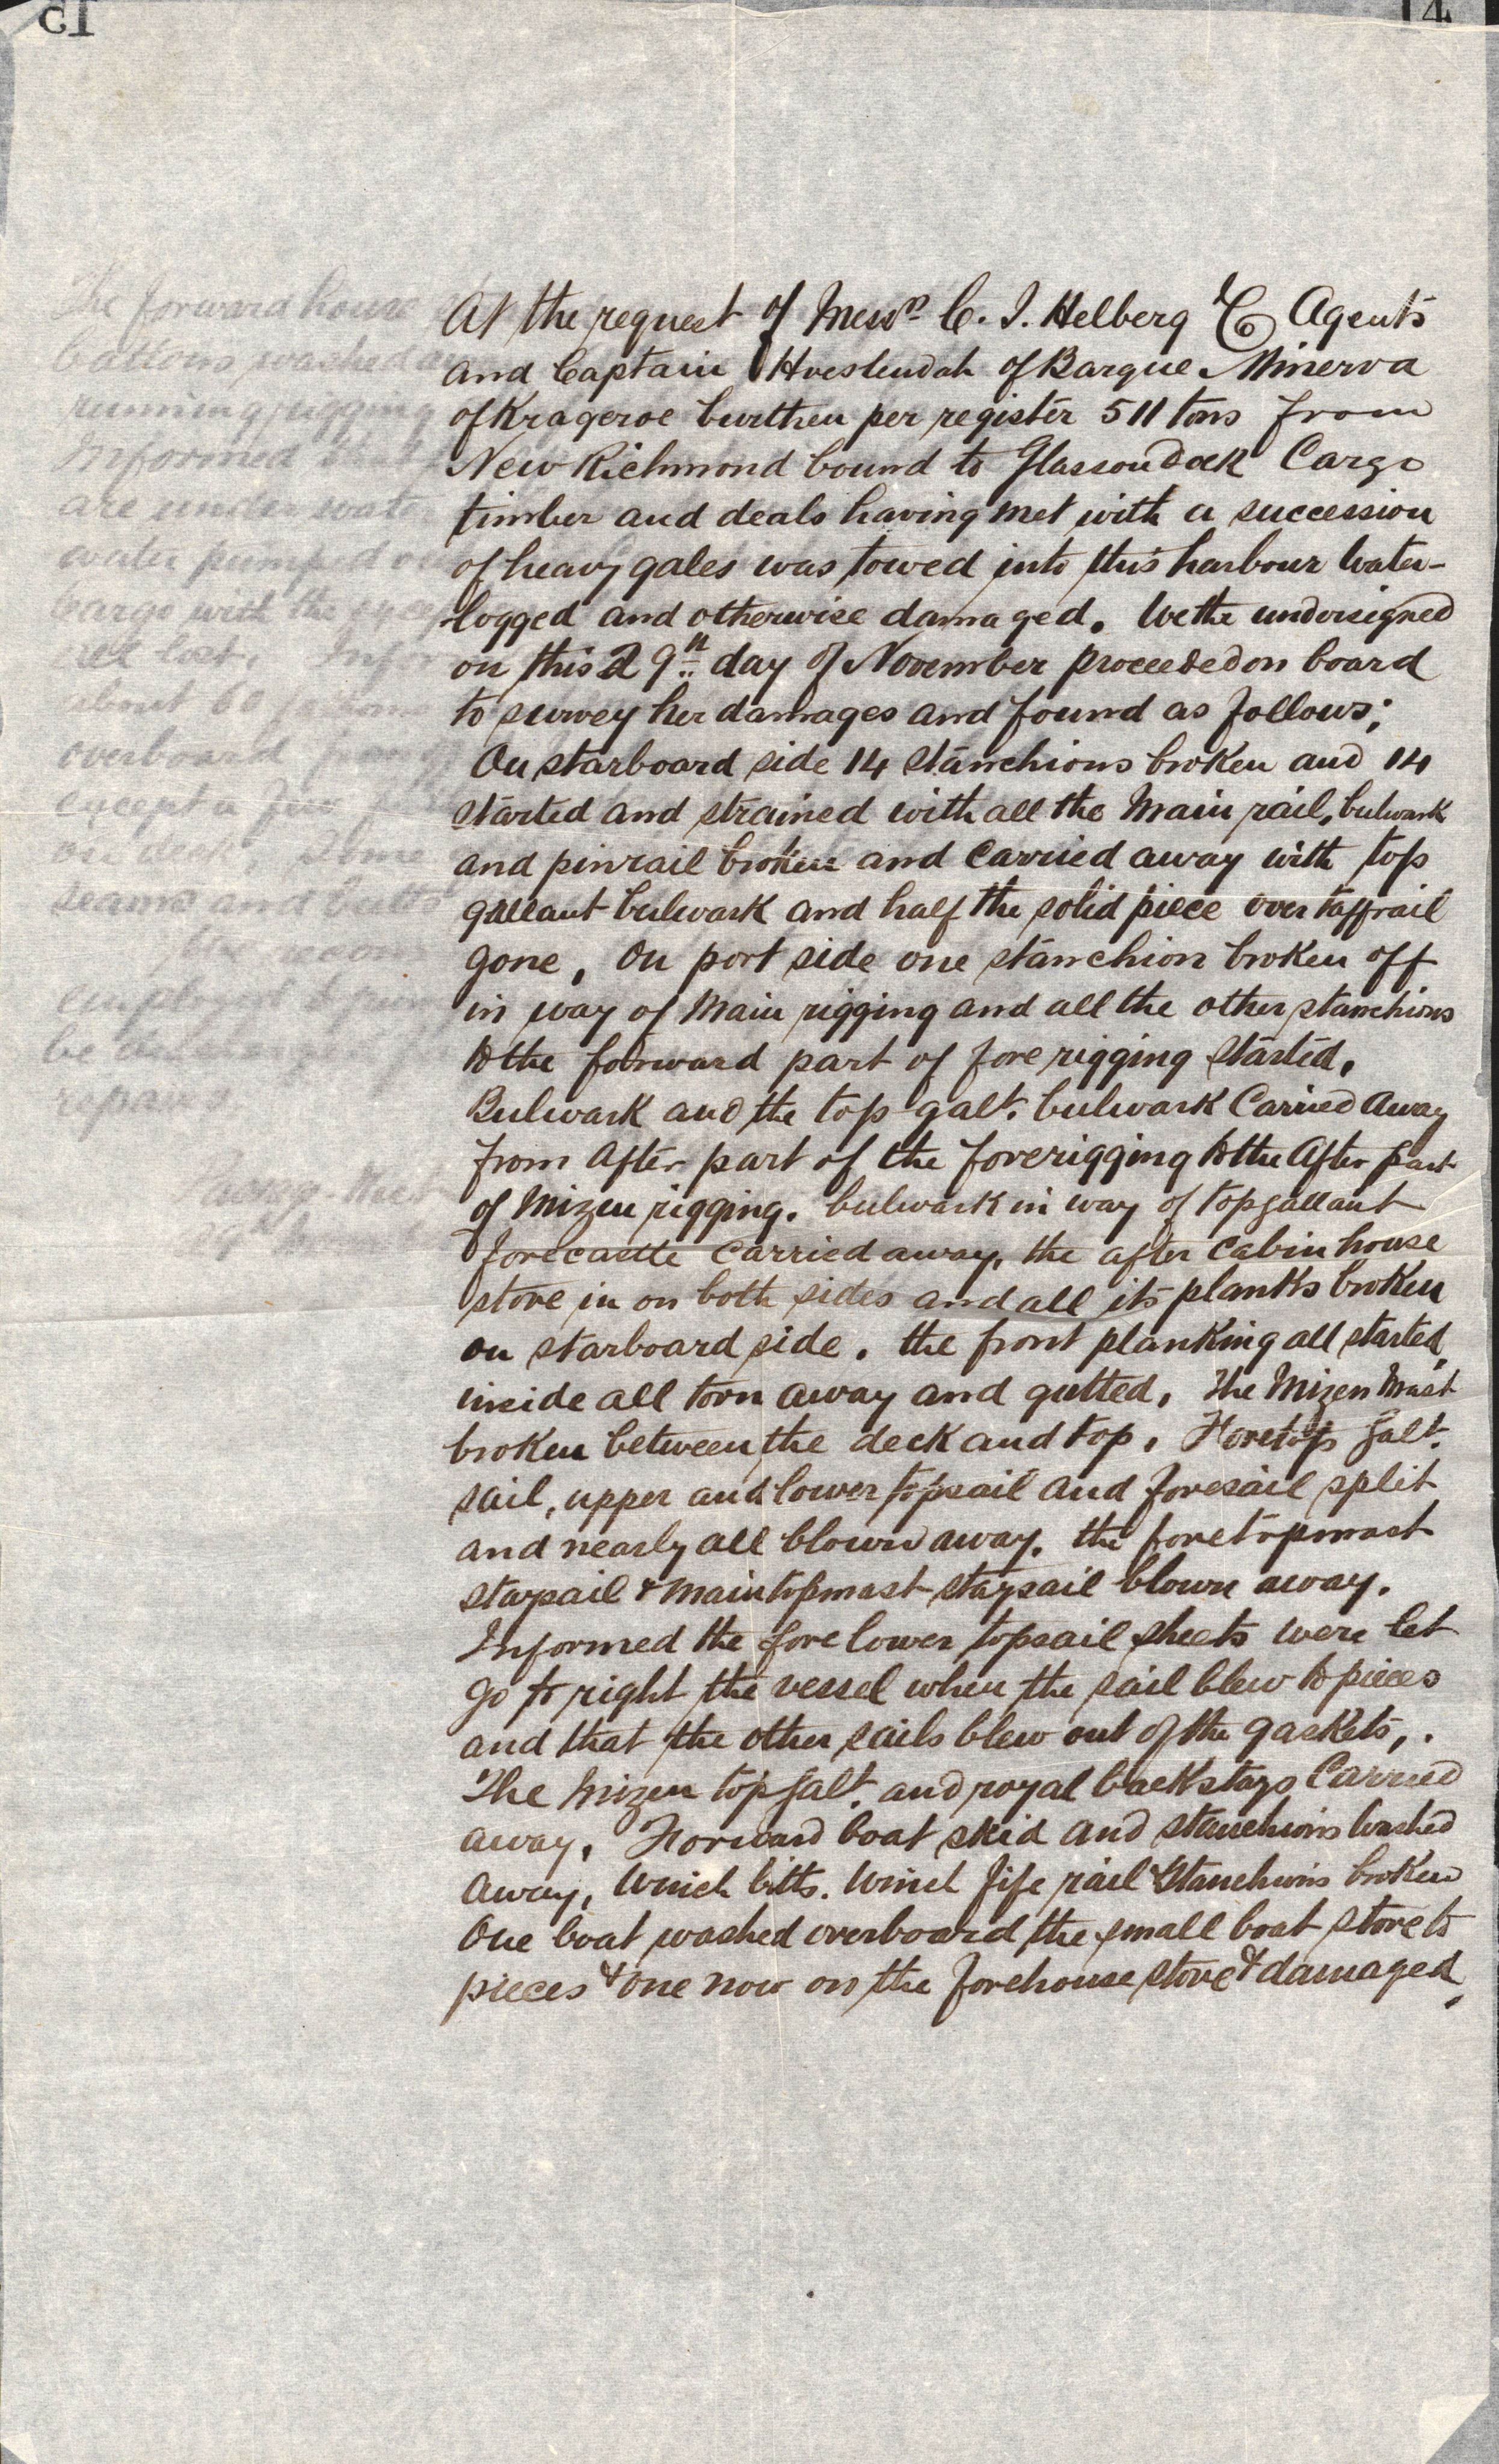 14
At the request of Messrs C. I. Helberg & Co Agents
and Captain of Barque Minerva
of Krageroe burthen per register 511 tons from
New Richmond bound to Glasson Dock Cargo
timber and deals having met with a succession
of heavy gales was towed into this harbour water-
logged and otherwise damaged. We the undersigned
on this 29th day of November proceeded on board
to survey her damages and found as follows;
On starboard side 14 stanchions broken and 14
started and strained with all the Main rail, bulwark
and pinrail broken and carried away with top
gallant bulwark and half the solid piece over taffrail
gone, On port side one stanchion broken off
in way of Main rigging and all the other stanchions
to the forward part of fore rigging started,
Bulwark and the top galt. bulwark Carried Away
from After part of the fore rigging to the After part
of Mizen rigging. bulwark in way of topgallant
forecastle carried away, the after cabin house
stove in on both sides and all its planks broken
on starboard side. the front planking all started,
inside all torn away and gutted, The Mizen Mast
broken between the deck and top, Foretop galt.
sail, upper and lower topsail and foresail split
and nearly all blown away. the foretopmast
staysail & maintopmast staysail blown away.
Informed the fore lower topsail sheets were let
go to right the vessel when the sail blew to pieces
and that the other sails blew out of the gaskets,.
The Mizen top galt. and royal backstays Carried
away, Forward boat skid and stanchions washed
Away, Winch bitts. Winch fife rail & Stanchions broken
One boat washed overboard the small boat stove to
pieces & one now on the forehouse stove & damaged.
The forward house
washed
running rigging
Informed
are under water
water pumped
cargo with the
lost. Infor
about 60
overboard
except a few
on deck. Some
seams and butts
We recom
employed
be
repairs